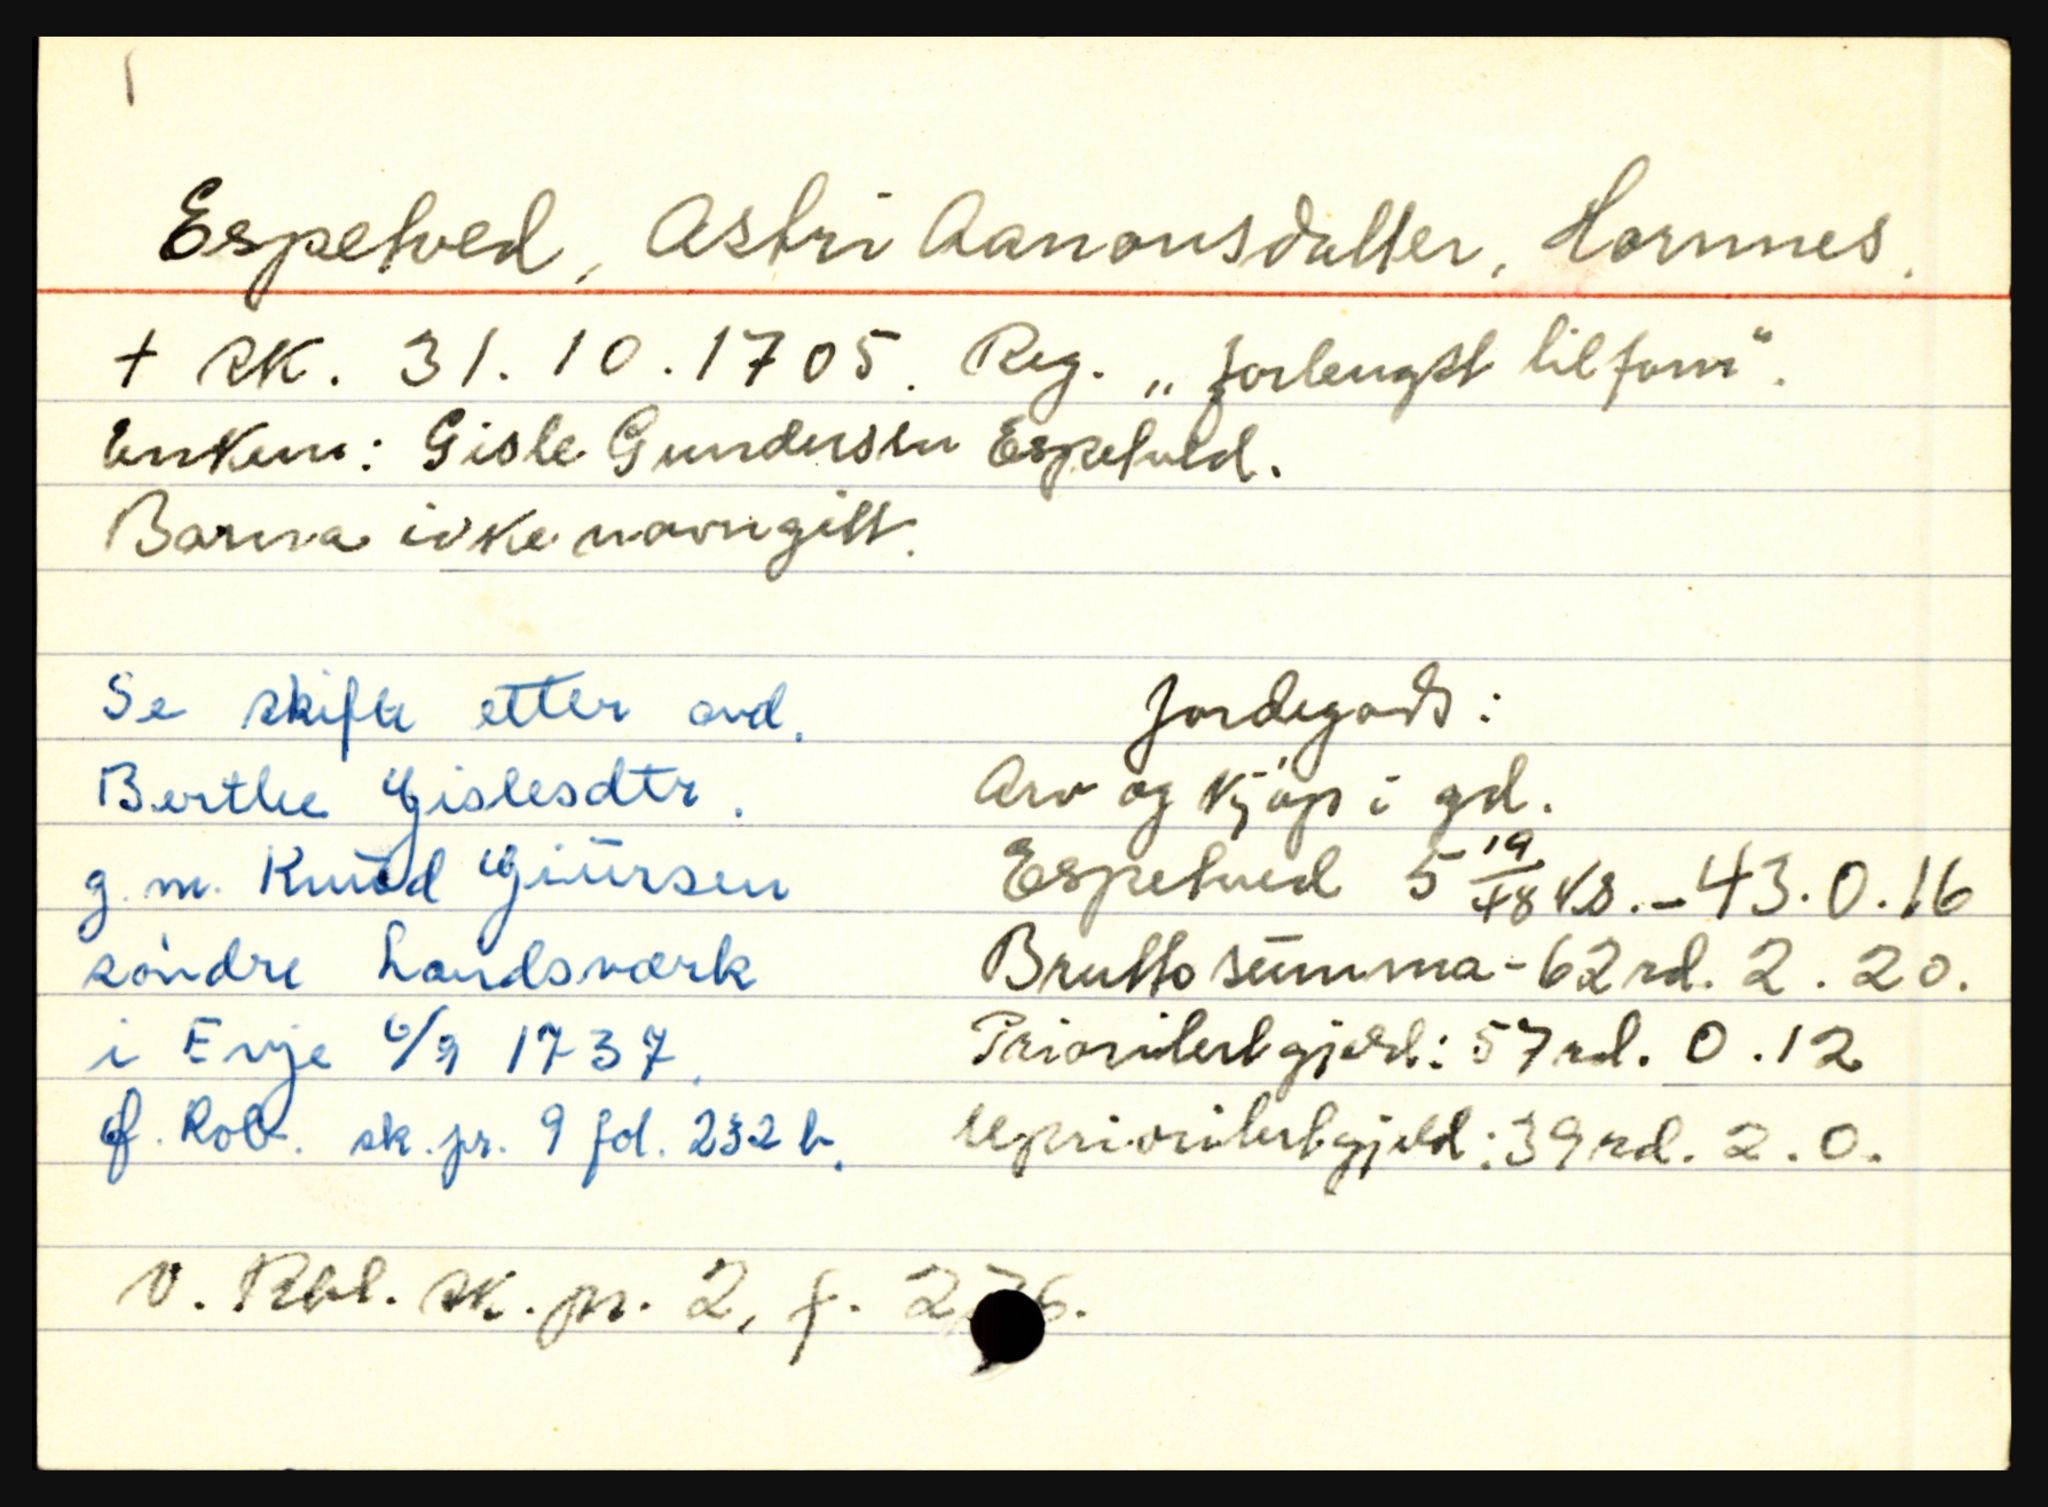 Espetved, Astri Aanonsdatter, Hornnes.
+ sk. 31.10.1705. Reg. „forlengst tilforn“.
Enkem: Gisle Gundersen Espetved.
Barna ikke navngitt.
Se skifte etter avd.
Berthe Gislesdtr.
g.m. Knud Giürsen
söndre Landsværk
i Evje 6/9 1737.
cf. Rob. sk.pr. 9 fol. 232 b.
Jordegods:
Arv og kjöp i gd.
Espetved 5 19/48 ks. - 43.0.16
Brutto sümma - 62 rd. 2.20.
Prioritert gjeld: 57 rd. 0.12
Uprioritert gjeld: 39 rd. 2.0.
V. Rbl. sk. pr. 2, f. 276.